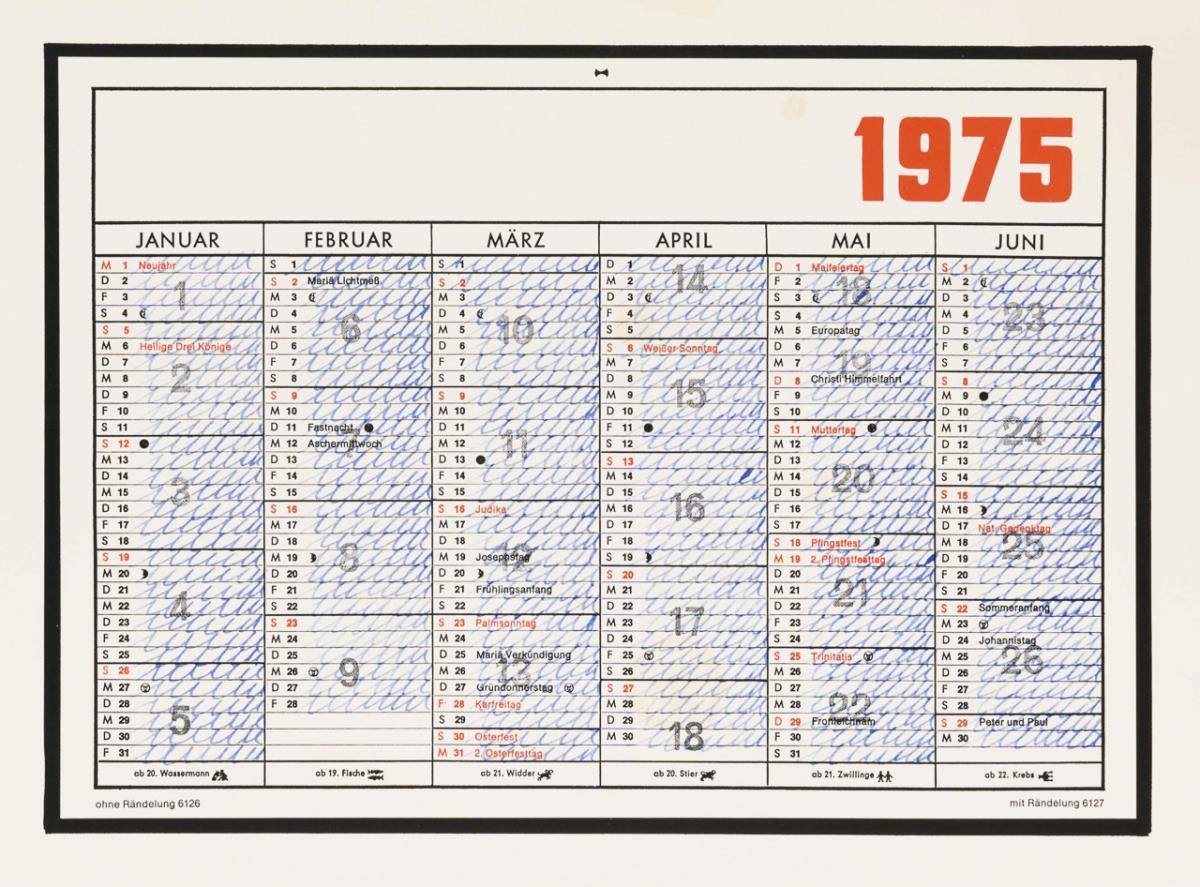 1975
JANUAR
M 1 Neujahr
D 2
F 3 1
S 4
S 5
M 6 Heilige Drei Könige
D 7
M 8 2
D 9
F 10
S 11
S 12
M 13
D 14
M 15 3
D 16
F 17
S 18
S 19
M 20
D 21
M 22 4
D 23
F 24
S 25
S 26
M 27
D 28
M 29 5
D 30
F 31
ab 20. Wassermann
FEBRUAR
S 1
S 2 Mariä Lichtmeß
M 3
D 4
M 5 6
D 6
F 7
S 8
S 9
M 10
D 11 Fastnacht
M 12 Aschermittwoch 7
D 13
F 14
S 15
S 16
M 17
D 18
M 19 8
D 20
F 21
S 22
S 23
M 24
D 25
M 26 9
D 27
F 28
ab 19. Fische
MÄRZ
S 1
S 2
M 3
D 4
M 5 10
D 6
F 7
S 8
S 9
M 10
D 11
M 12 11
D 13
F 14
S 15
S 16 Judika
M 17
D 18
M 19 Josephstag 12
D 20
F 21 Frühlingsanfang
S 22
S 23 Palmsonntag
M 24
D 25 Mariä Verkündigung
M 26 13
D 27 Gründonnerstag
F 28 Karfreitag
S 29
S 30 Osterfest
M 31 2. Osterfesttag
ab 21. Widder
APRIL
D 1
M 2 14
D 3
F 4
S 5
S 6 Weißer Sonntag
M 7
D 8
M 9 15
D 10
F 11
S 12
S 13
M 14
D 15
M 16 16
D 17
F 18
S 19
S 20
M 21
D 22
M 23 17
D 24
F 25
S 26
S 27
M 28
D 29
M 30 18
ab 20. Stier
MAI
D 1 Maifeiertag
F 2 18
S 3
S 4
M 5 Europatag
D 6
M 7 19
D 8 Christi Himmelfahrt
F 9
S 10
S 11 Muttertag
M 12
D 13
M 14 20
D 15
F 16
S 17
S 18 Pfingstfest
M 19 2. Pfingstfesttag
D 20
M 21 21
D 22
F 23
S 24
S 25 Trinitatis
M 26
D 27
M 28 22
D 29 Fronleichnam
F 30
S 31
ab 21. Zwillinge
JUNI
S 1
M 2
D 3
M 4 23
D 5
F 6
S 7
S 8
M 9
D 10
M 11 24
D 12
F 13
S 14
S 15
M 16
D 17 Nat. Gedenktag
M 18 25
D 19
F 20
S 21
S 22 Sommeranfang
M 23
D 24 Johannistag
M 25 26
D 26
F 27
S 28
S 29 Peter und Paul
M 30
ab 22. Krebs
ohne Rändelung 6126
mit Rändelung 6127